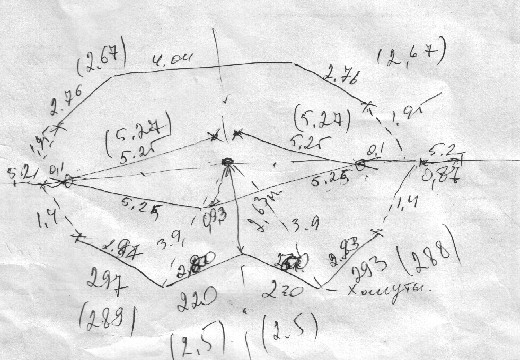 (2,67)
4,04
(2,67)
2.76
2.76
1,95
1,95
(5.27)
5.25
(5.27)
5.25
0,1
5.2
0,87
5.21
0,1
5.25
5.25
0,93
2,63м
1,4
1,4
3.9
3.9
2.97
2.93
297
(289)
220
220
293 (288)
Хомуты.
(2,5)
(2.5)